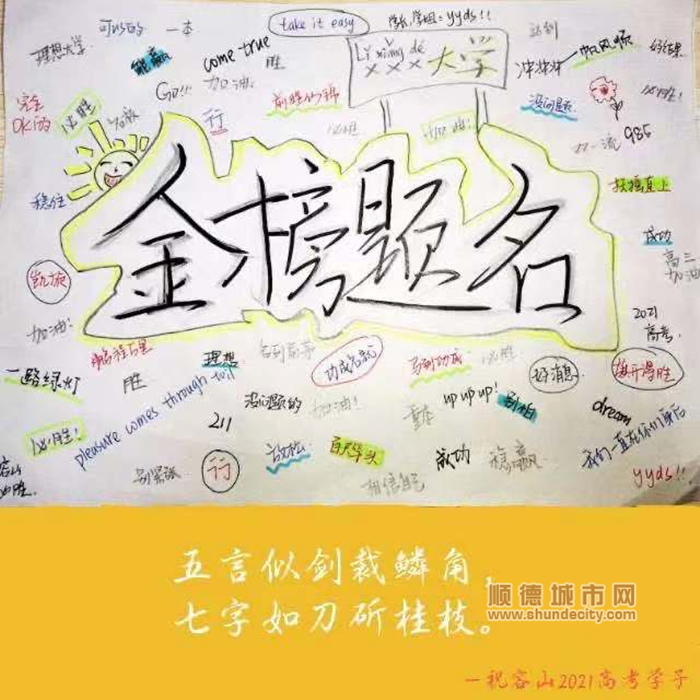 take it easy
学长,学姐=yyds!!
可以的
一本
理想大学
能赢
come true
胜
Lǐ xiǎng dé
×××大学
冲冲冲
一帆风顺
好结果
完全
OK的
必胜
Go!!!
加油!
前程似锦
没问题
必胜!
行
必胜
加油!
双一流
985
稳住
扶摇直上
成功
高三
加油
凯旋
金榜题名
加油!
2021
高考
鹏程万里
理想
名列前茅
功成名就
马到功成
必胜
好消息
旗开得胜
一路绿灯
胜
pleasure comes through toil
211
没问题的
加油!
up up up!
别怕
dream
必胜!
我们一直在你们身后
yyds!!
容山
必胜
别紧张
行
放松
百尺竿头
成功
稳赢
相信自己
五言似剑裁鳞角,
七字如刀斫桂枝。
顺德城市网
www.shundecity.com
一祝容山2021高考学子